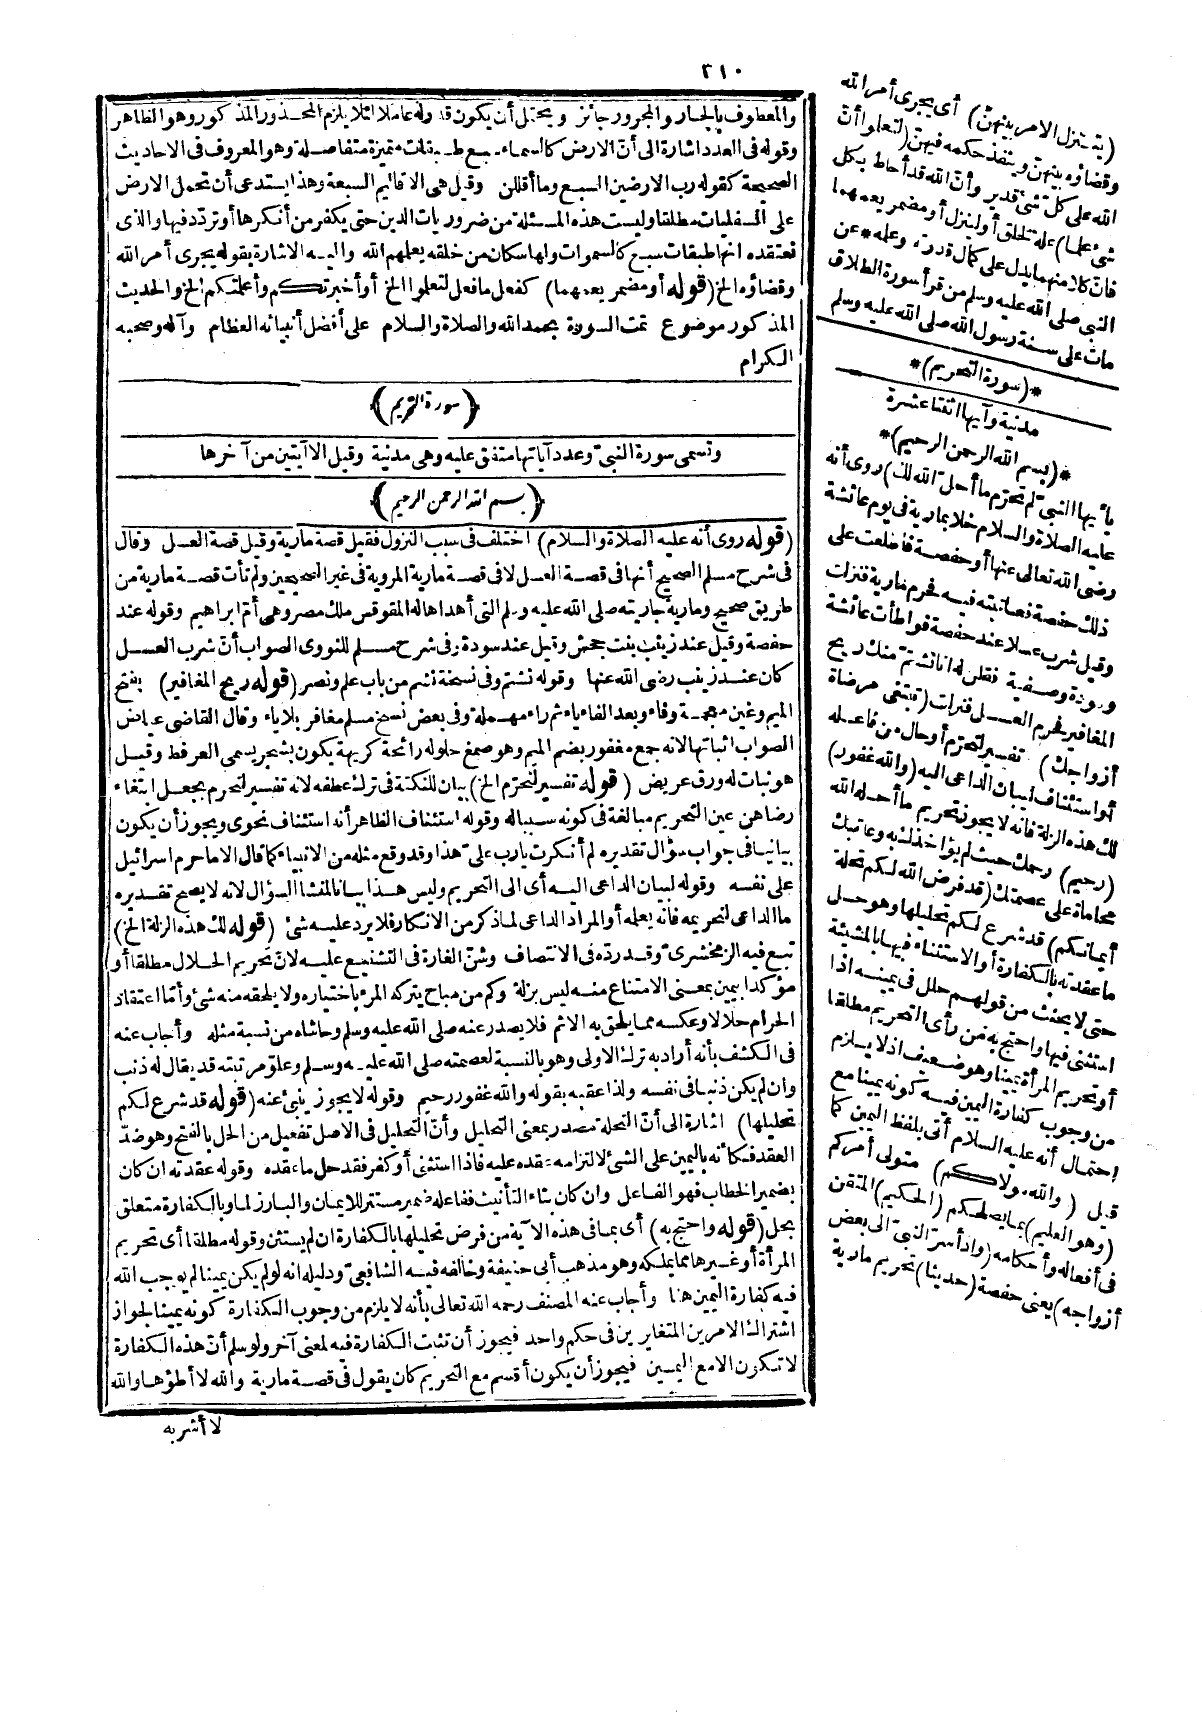 ٢١٠
والمعطوف بالجار والمجرور جائز ويحتمل أن يكون قوله عاملا لئلا يلزم المحذور المذكور وهو الظاهر
وقوله في العدد اشارة الى أنّ الارض كالسماء سبع طبقات متميزة متفاصلة وهو المعروف في الاحاديث
الصحيحة كقوله رب الارضين السبع وما أقللن وقيل هي الاقاليم السبعة وهذا يستدعى أن تحمل الارض
على السفليات مطلقا وليست هذه المسئلة من ضروريات الدين حتى يكفر من أنكرها أو تردّد فيها والذى
نعتقده انها طبقات سبع كالسموات ولها سكان من خلقه يعلمهم الله واليه الاشارة بقوله يجرى أمر الله
وقضاؤه الخ (قوله أو مضمر يعمهما) كفعل ما فعل لتعلموا الخ أو أخبرتكم وأعلمتكم الخ والحديث
المذكور موضوع تمت السورة بحمد الله والصلاة والسلام على أفضل أنبيائه العظام وآله وصحبه
الكرام
﴿سورة التحريم﴾
وتسمى سورة النبيّ وعدد آياتها متفق عليه وهى مدنية وقيل الا آيتين من آخرها
﴿بسم الله الرحمن الرحيم﴾
(قوله روى أنه عليه الصلاة والسلام) اختلف في سبب النزول فقيل قصة مارية وقيل قصة العسل وقال
في شرح مسلم الصحيح أنها في قصة العسل لا في قصة مارية المروية في غير الصحيحين ولم تأت قصة مارية من
طريق صحيح ومارية جاريته صلى الله عليه وسلم التى أهداها له المقوقس ملك مصر وهى أمّ ابراهيم وقوله عند
حفصة وقيل عند زينب بنت جحش وقيل عند سودة وفي شرح مسلم للنووى الصواب أنّ شرب العسل
كان عند زينب رضى الله عنها وقوله نشتم وفى نسخة نشم من باب علم ونصر (قوله ريح المغافير) بفتح
الميم وغين معجمة وفاء وبعد الفاء ياء ثم راء مهملة وفى بعض نسخ مسلم مغافر بلا ياء وقال القاضى عياض
الصواب اثباتها لانه جمع مغفور بضم الميم وهو صمغ حلو له رائحة كريهة يكون بشجر يسمى العرفط وقيل
هو نبات له ورق عريض (قوله تفسير لتحرّم الخ) بيان للنكتة في ترك عطفه لانه تفسير لتحرم بجعل ابتغاء
رضاهن عين التحريم مبالغة في كونه سبباله وقوله استئناف الظاهر أنه استئناف نحوى ويجوز أن يكون
بيانيا في جواب سؤال تقديره لم أنكرت يا رب علىّ هذا وقد وقع مثله من الانبياء كما قال الا ما حرم اسرائيل
على نفسه وقوله لبيان الداعى اليه أى الى التحريم وليس هذا بيانا لمنشا السؤال لانه لا يصح تقديره
ما الداعى لتحريمه فانه يعلمه أو المراد الداعى لما ذكر من الانكار فلا يرد عليه شئ (قوله لك هذه الزلة الخ)
تبع فيه الزمخشرىّ وقد رده في الانتصاف وشنّ الغارة في التشنيع عليه لانّ تحريم الحلال مطلقا أو
مؤكدا بيمين بمعنى الامتناع منه ليس بزلة وكم من مباح يتركه المرء باختياره ولا يلحقه منه شئ وأمّا اعتقاد
الحرام حلالا وعكسه مما يلحق به الاثم فلا يصدر عنه صلى الله عليه وسلم وحاشاه من نسبة مثله وأجاب عنه
في الكشف بأنه أراد به ترك الاولى وهو بالنسبة لعصمته صلى الله عليه وسلم وعلوّ مرتبته قد يقال له ذنب
وان لم يكن ذنبا في نفسه ولذا عقبه بقوله والله غفور رحيم وقوله لا يجوز ينبئ عنه (قوله قد شرع لكم
تحليلها) اشارة الى أنّ التحلة مصدر بمعنى التحليل وأنّ التحليل في الاصل تفعيل من الحل بالفتح وهو ضدّ
العقد فكأنه باليمين على الشئ لالتزامه عقده عليه فاذا استثنى أو كفر فقد حل ما عقده وقوله عقدته ان كان
بضمير الخطاب فهو الفاعل وان كان بتاء التأنيث ففاعله ضمير مستتر للايمان والبارز لما وبالكفارة متعلق
بحل (قوله واحتج به) أى بما في هذه الآية من فرض تحليلها بالكفارة ان لم يستثن وقوله مطلقا أى تحريم
المرأة أو غيرها مما يملكه وهو مذهب أبى حنيفة وخالفه فيه الشافعىّ ودليله انه لو لم يكن يمينا لم يوجب الله
فيه كفارة اليمين هنا وأجاب عنه المصنف رحمه الله تعالى بأنه لا يلزم من وجوب الكفارة كونه يمينا لجواز
اشتراك الامرين المتغايرين في حكم واحد فيجوز أن تثبت الكفارة فيه لمعنى آخر ولو سلم أنّ هذه الكفارة
لا تكون الا مع اليمين فيجوز أن يكون أقسم مع التحريم كان يقول في قصة مارية والله لا أطؤها والله
لا أشربه
(يتنزل الامر بينهنّ) أى يجرى أمر الله
وقضاؤه بينهنّ وينفذ حكمه فيهنّ (لتعلموا أنّ
الله على كل شئ قدير وأنّ الله قد أحاط بكل
شئ علما) علة لخلق أو لينزل أو مضمر يعمهما
فانّ كلا منهما يدل على كمال قدرته وعلمه * عن
النبى صلى الله عليه وسلم من قرأ سورة الطلاق
مات على سنة رسول الله صلى الله عليه وسلم
*(سورة التحريم)*
مدنية وآيها اثنتا عشرة
*(بسم الله الرحمن الرحيم)*
(يأيها النبىّ لم تحرّم ما أحلّ الله لك) روى أنه
عليه الصلاة والسلام خلا بمارية في يوم عائشة
رضى الله تعالى عنها أو حفصة فاطلعت على
ذلك حفصة فعاتبته فيه فحرم مارية فنزلت
وقيل شرب عسلا عند حفصة فواطأت عائشة
سودة وصفية فقلن له انا نشتمّ منك ريح
المغافير فحرم العسل فنزلت (تبتغى مرضاة
أزواجك) تفسير لتحرّم أو حال من فاعله
أو استئناف لبيان الداعى اليه (والله غفور)
لك هذه الزلة فانه لا يجوز تحريم ما أحله الله
(رحيم) رحمك حيث لم يؤاخذك به وعاتبك
محاماة على عصمتك (قد فرض الله لكم تحلة
أيمانكم) قد شرع لكم تحليلها وهو حل
ما عقدته بالكفارة أو الاستثناء فيها بالمشيئة
حتى لا يحنث من قولهم حلل في يمينه اذا
استثنى فيها واحتج به من رأى التحريم مطلقا
أو تحريم المرأة يمينا وهو ضعيف اذ لا يلزم
من وجوب كفارة اليمين فيه كونه يمينا مع
احتمال أنه عليه السلام أتى بلفظ اليمين كما
قيل (والله مولاكم) متولى أمركم
(وهو العليم) بما يصلحكم (الحكيم) المتقن
في أفعاله وأحكامه (واذ أسرّ النبىّ الى بعض
أزواجه) يعنى حفصة (حديثا) تحريم مارية